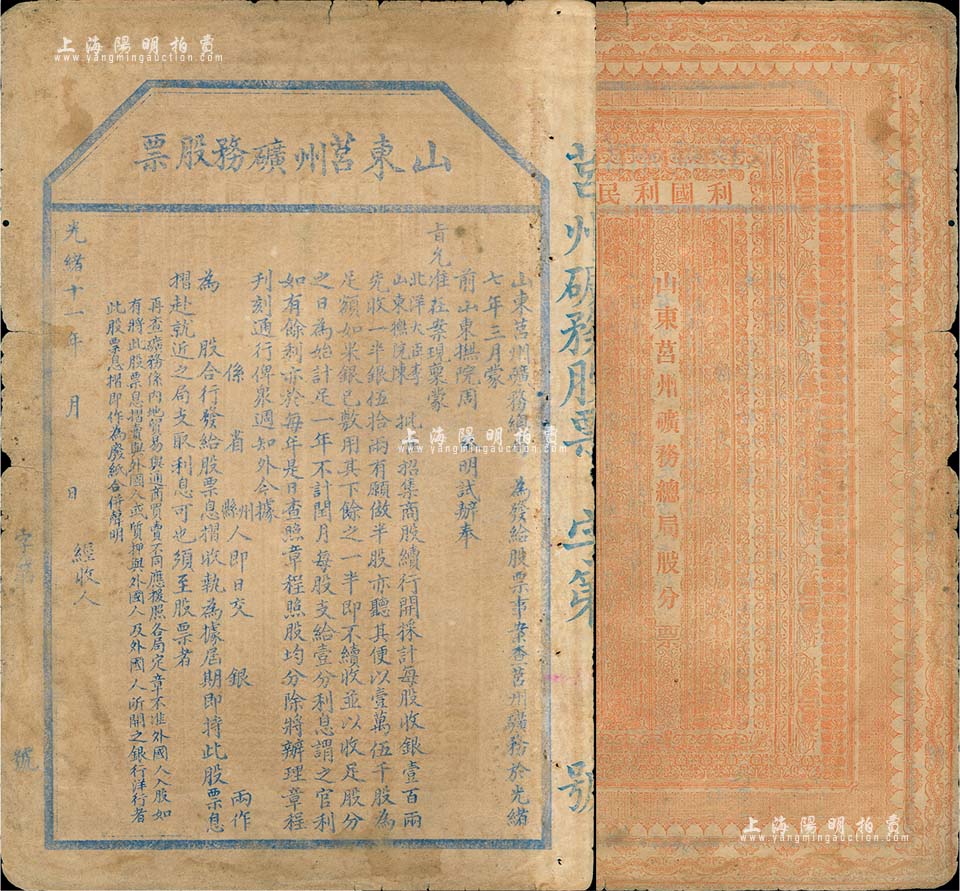 上海陽明拍賣
www.yangmingauction.com
上海陽明拍賣
www.yangmingauction.com
山東莒州礦務股票
山東莒州礦務總局 為發給股票事案查莒州礦務於光緒
七年三月蒙
前山東撫院周 奏明試辦奉
旨允准在案現稟蒙
北洋大臣李
山東撫院陳 批 招集商股續行開採計每股收銀壹百兩
先收一半銀伍拾兩有願做半股亦聽其便以壹萬伍千股為
足額如集銀已敷用其下餘之一半即不續收並以收足股分
之日為始計足一年不計閏月每股支給壹分利息謂之官利
如有餘利亦於每年是日查照章程照股均分除將辦理章程
刊刻通行俾衆週知外今據
係 省 州縣 人即日交 銀 兩作
為 股合行發給股票息摺收執為據屆期即持此股票息
摺赴就近之局支取利息可也須至股票者
再查礦務係內地貿易與通商買賣不同應援照各局定章不准外國人入股如
有時此股票息摺賣與外國人或質押與外國人及外國人所開之銀行洋行者
此股票息摺即作為廢紙合併聲明
光緒十一年 月 日 經收人
字第 號
莒州礦務股票 字第 號
利國利民
山東莒州礦務總局股分票
上海陽明拍賣
www.yangmingauction.com
上海陽明拍賣
www.yangmingauction.com